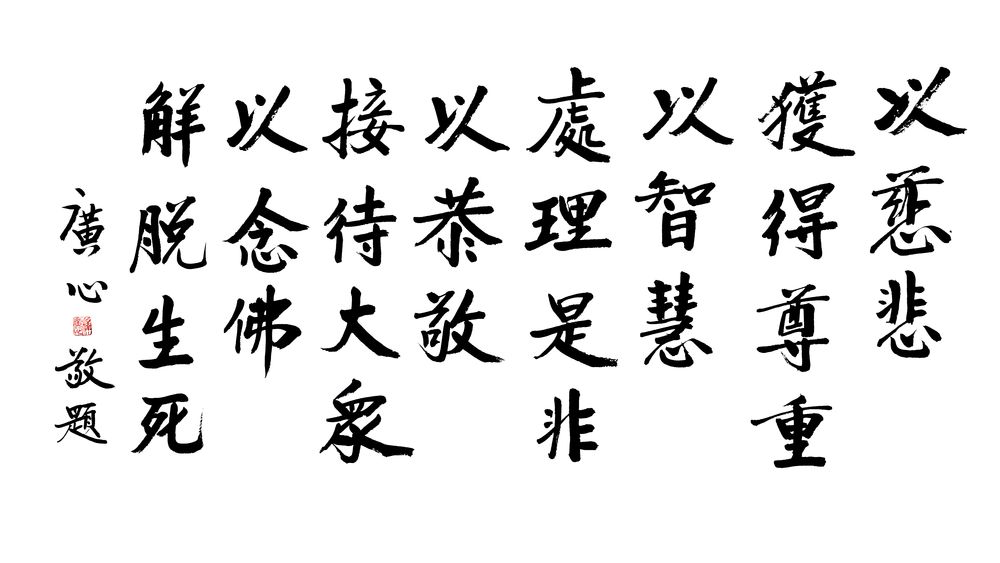 以慈悲
獲得尊重
以智慧
處理是非
以恭敬
接待大眾
以念佛
解脱生死
廣心敬題